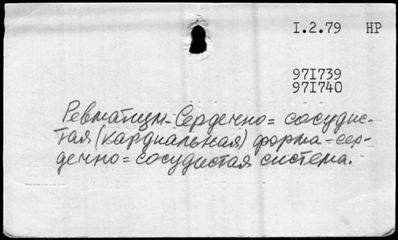 I.2.79 HP
97I739
97I740
Ревматизм-Сердечно=сосудис-
тая (кардиальная) форма-сер-
дечно=сосудистая система.